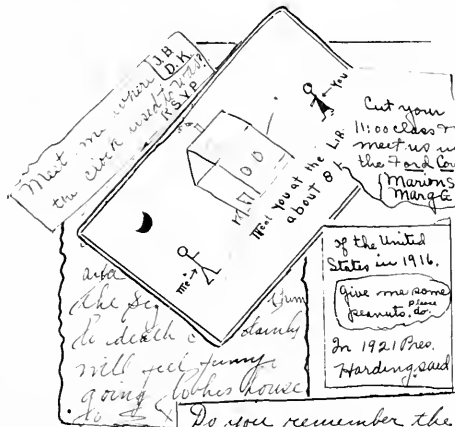 Meet me where
the clock used to
R.S.V.P.
J.B.
D.K.
You
me
Meet You at the LIB.
about 8
Cut your
11:00 class &
meet us in
the Ford
Marion S
Marg
of the United
States in 1916.
Give me some
peanuts. please do.
In 1921 Pres.
Harding said
the
to death
will feel funny
going to his house
to
Do you remember the